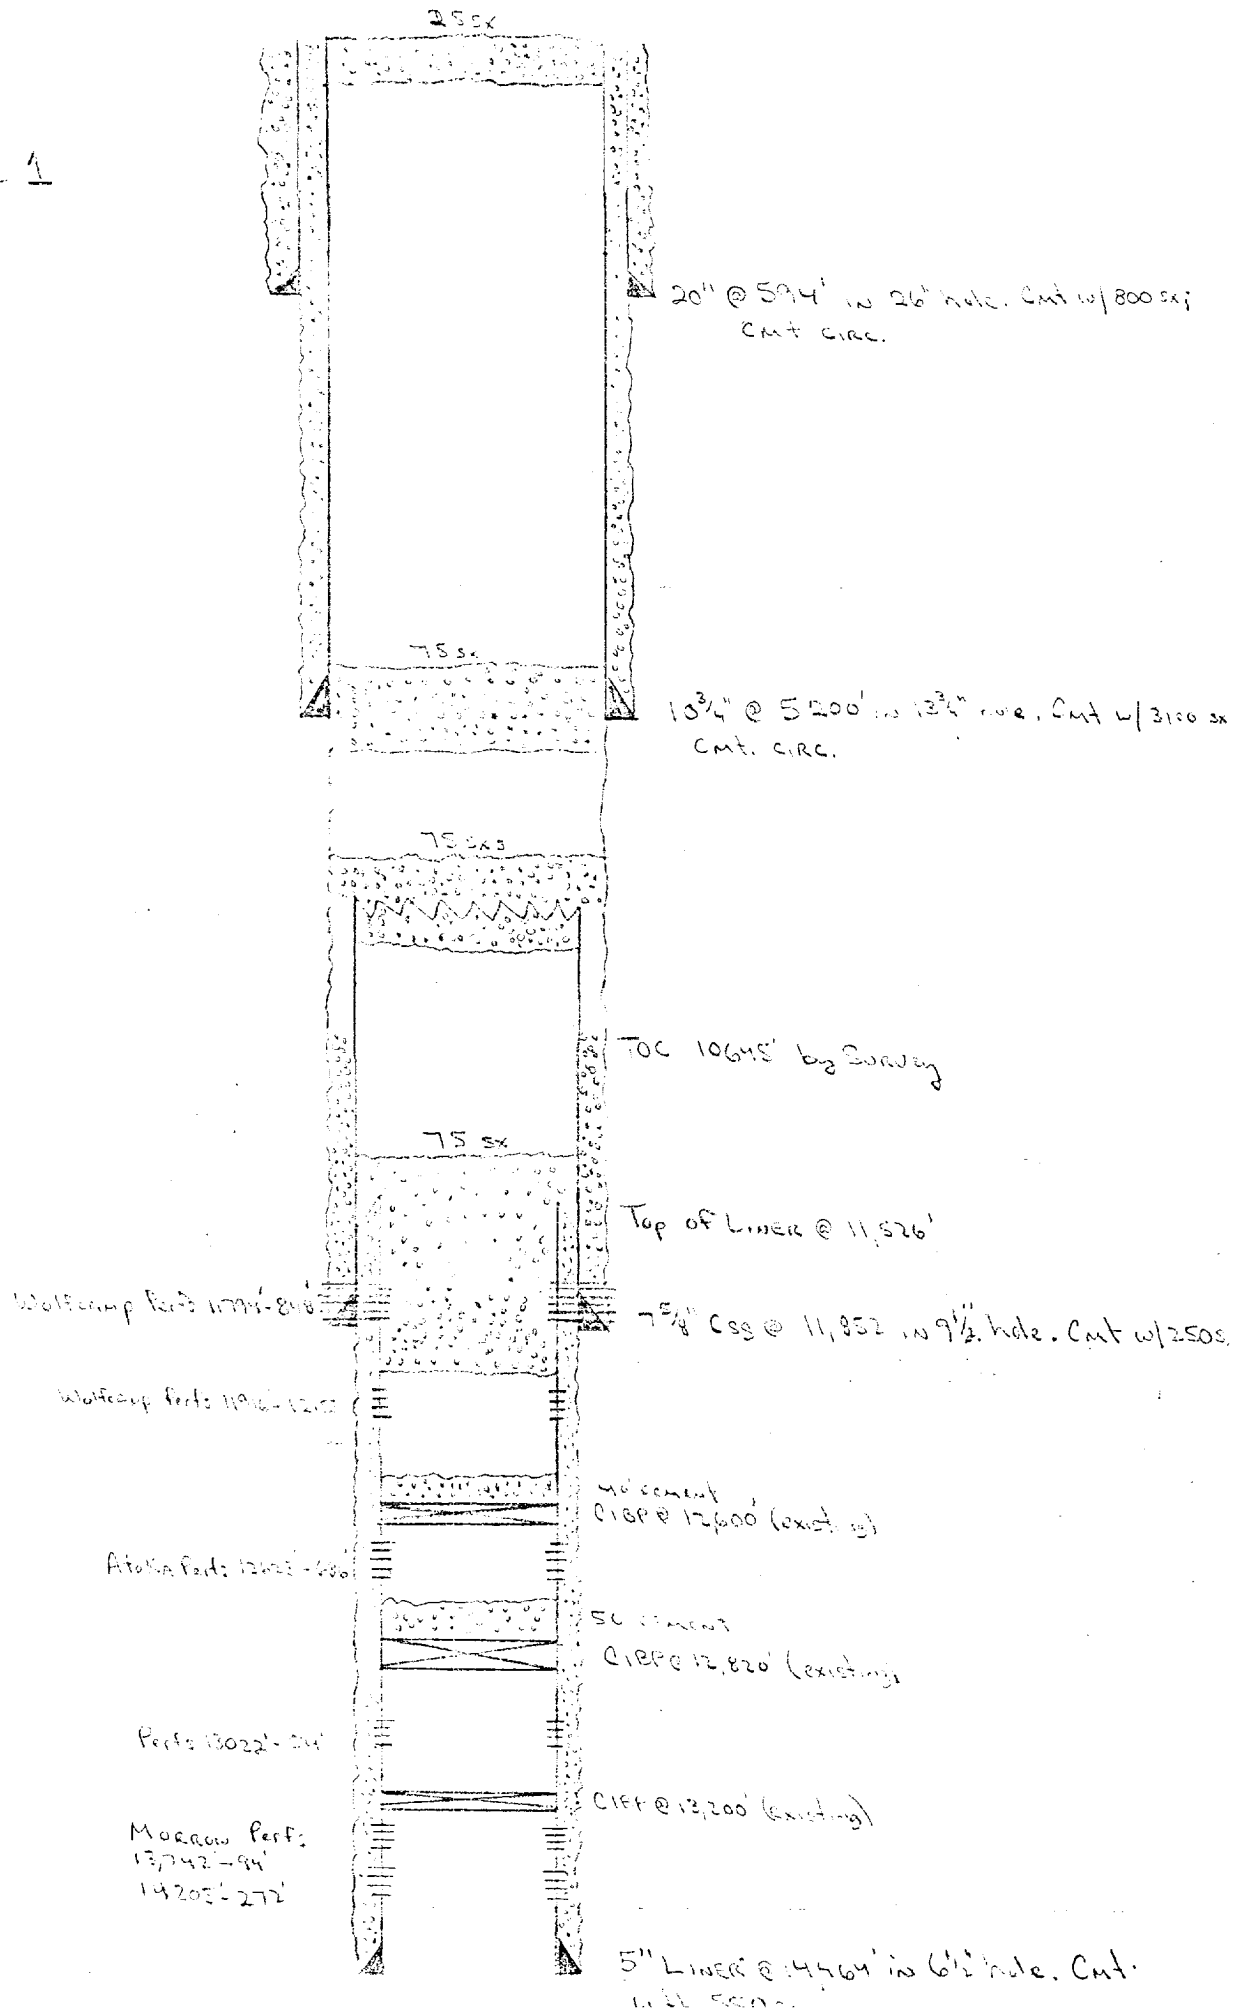 25 sx
1
20" @ 594' in 26" hole. Cmt w/ 800 sx;
Cmt circ.
75 sx
10 3/4" @ 5200' in 13 3/4" hole. Cmt w/ 3100 sx
Cmt. circ.
75 sxs
TOC 10645' by Survey
75 sx
Top of Liner @ 11,526'
Wolfcamp Perfs
7 5/8" Csg @ 11,852 in 9 1/2" hole. Cmt w/ 250 s
Wolfcamp Perfs
cement
CIBP @ 12,600' (existing)
Atoka Perfs
cement
CIBP @ 12,820' (existing)
Perfs 13022'-
@ 13,200' (existing)
Morrow Perfs
13,742'-94'
14205'-272'
5" Liner @ 14464' in 6 1/2" hole. Cmt.